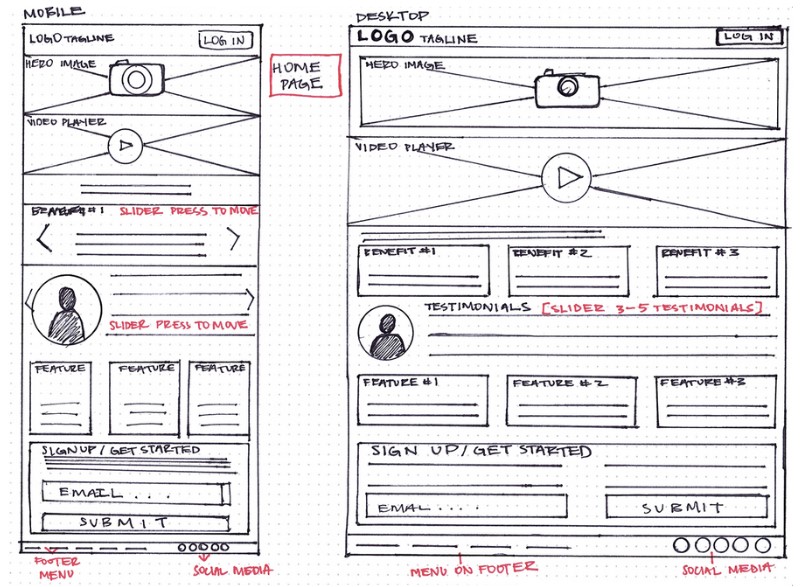 MOBILE
LOGO TAGLINE
LOG IN
HERO IMAGE
VIDEO PLAYER
BENEFIT #1 SLIDER PRESS TO MOVE
SLIDER PRESS TO MOVE
FEATURE FEATURE FEATURE
SIGN UP/GET STARTED
EMAIL . . .
SUBMIT
FOOTER
MENU
SOCIAL MEDIA
HOME
PAGE
DESKTOP
LOGO TAGLINE
LOG IN
HERO IMAGE
VIDEO PLAYER
BENEFIT #1 BENEFIT #2 BENEFIT #3
TESTIMONIALS [SLIDER 3-5 TESTIMONIALS]
FEATURE #1 FEATURE #2 FEATURE #3
SIGN UP/GET STARTED
EMAL . . . .
SUBMIT
MENU ON FOOTER
SOCIAL MEDIA